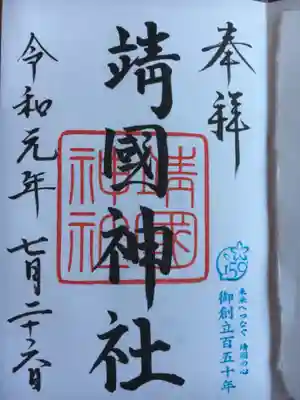 奉拝
150
未来へつなぐ 靖國の心
御創立百五十年
靖國神社
靖國
神社
令和元年 七月二十六日